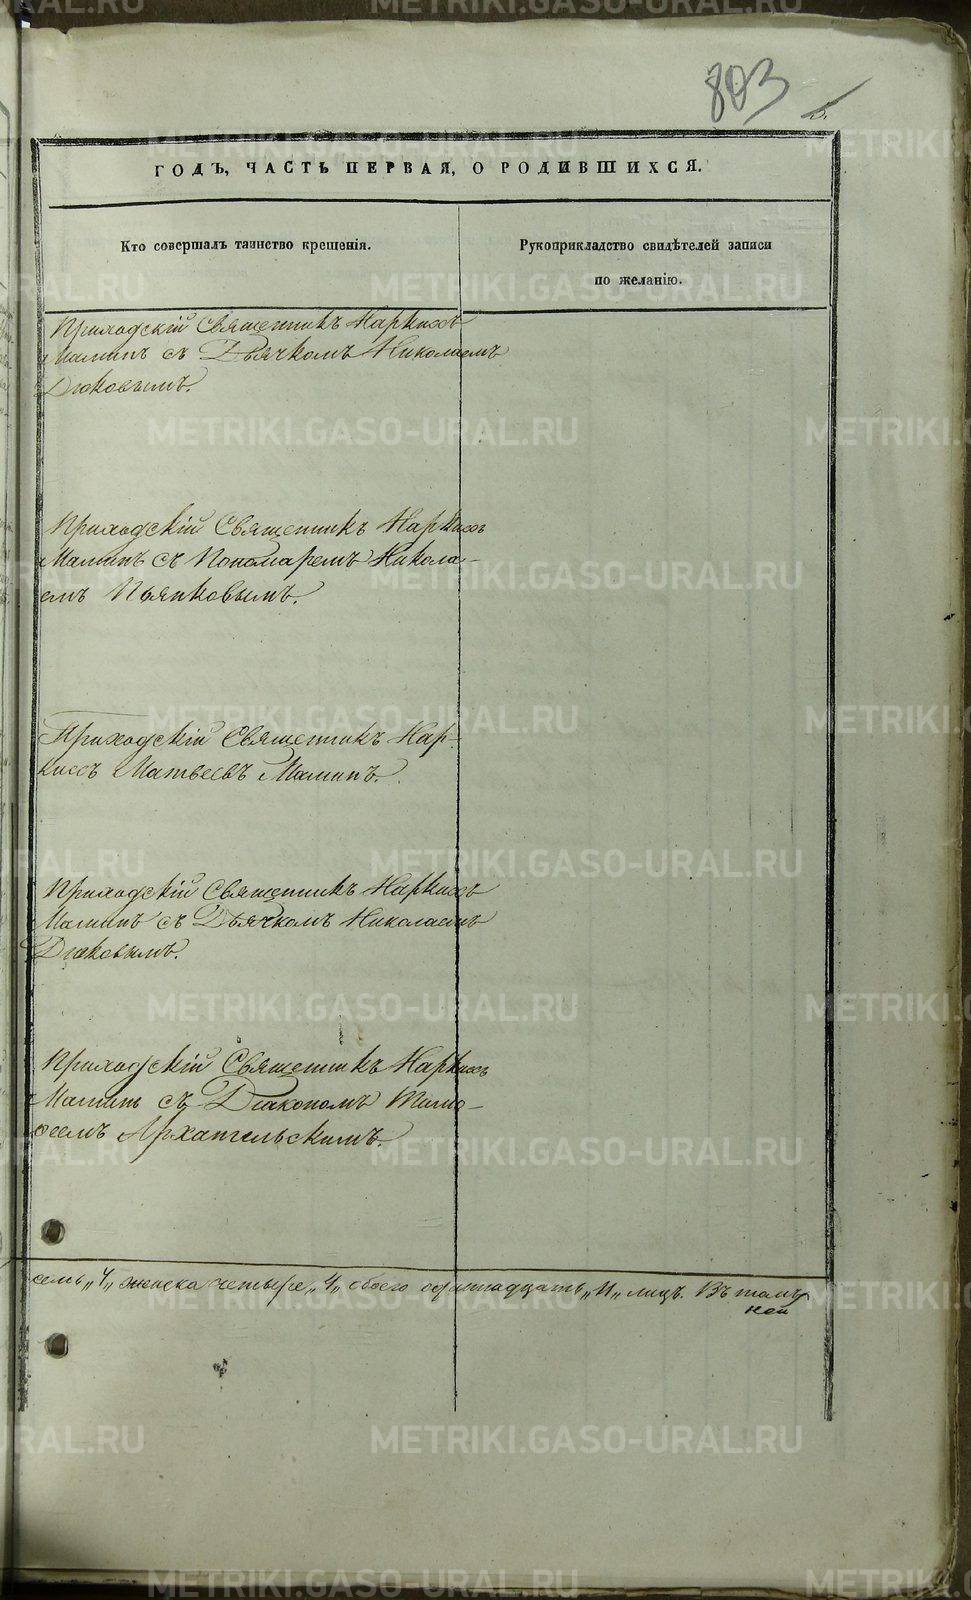 803
ГОДЪ, ЧАСТЬ ПЕРВАЯ, О РОДИВШИХСЯ.
Кто совершалъ таинство крещенія.
Рукоприкладство свидѣтелей записи
по желанію.
Приходскій Священникъ Наркиссъ
Маминъ съ Дьячкомъ Николаемъ
Дюковымъ.
Приходскій Священникъ Наркиссъ
Маминъ съ Пономаремъ Никола-
емъ Пьянковымъ.
Приходскій Священникъ Нар-
киссъ Матвеевъ Маминъ.
Приходскій Священникъ Наркиссъ
Маминъ съ Дьячкомъ Николаемъ
Дюковымъ.
Приходскій Священникъ Наркиссъ
Маминъ съ Діакономъ Тимо-
феемъ Архангельскимъ.
семь „7„ женска четыре „4„ обоего одиннадцать „11„ лицъ. Въ том
METRIKI.GASO-URAL.RU